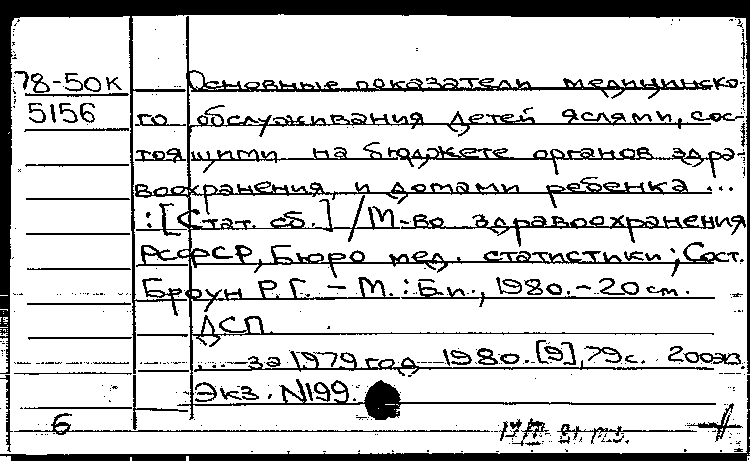 78-50к Основные показатели медицинско-
5156 го обслуживания детей яслями, сос-
тоящими на бюджете органов здра-
воохранения, и домами ребенка ...
: [Стат. сб.] / М-во здравоохранения
РСФСР, Бюро мед. статистики; Сост.
Броун Р.Г. - М. : Б.и., 1980. - 20 см.
ДСП.
... за 1979 год 1980. [9], 79 с. 200 экз.
Экз. N199.
6